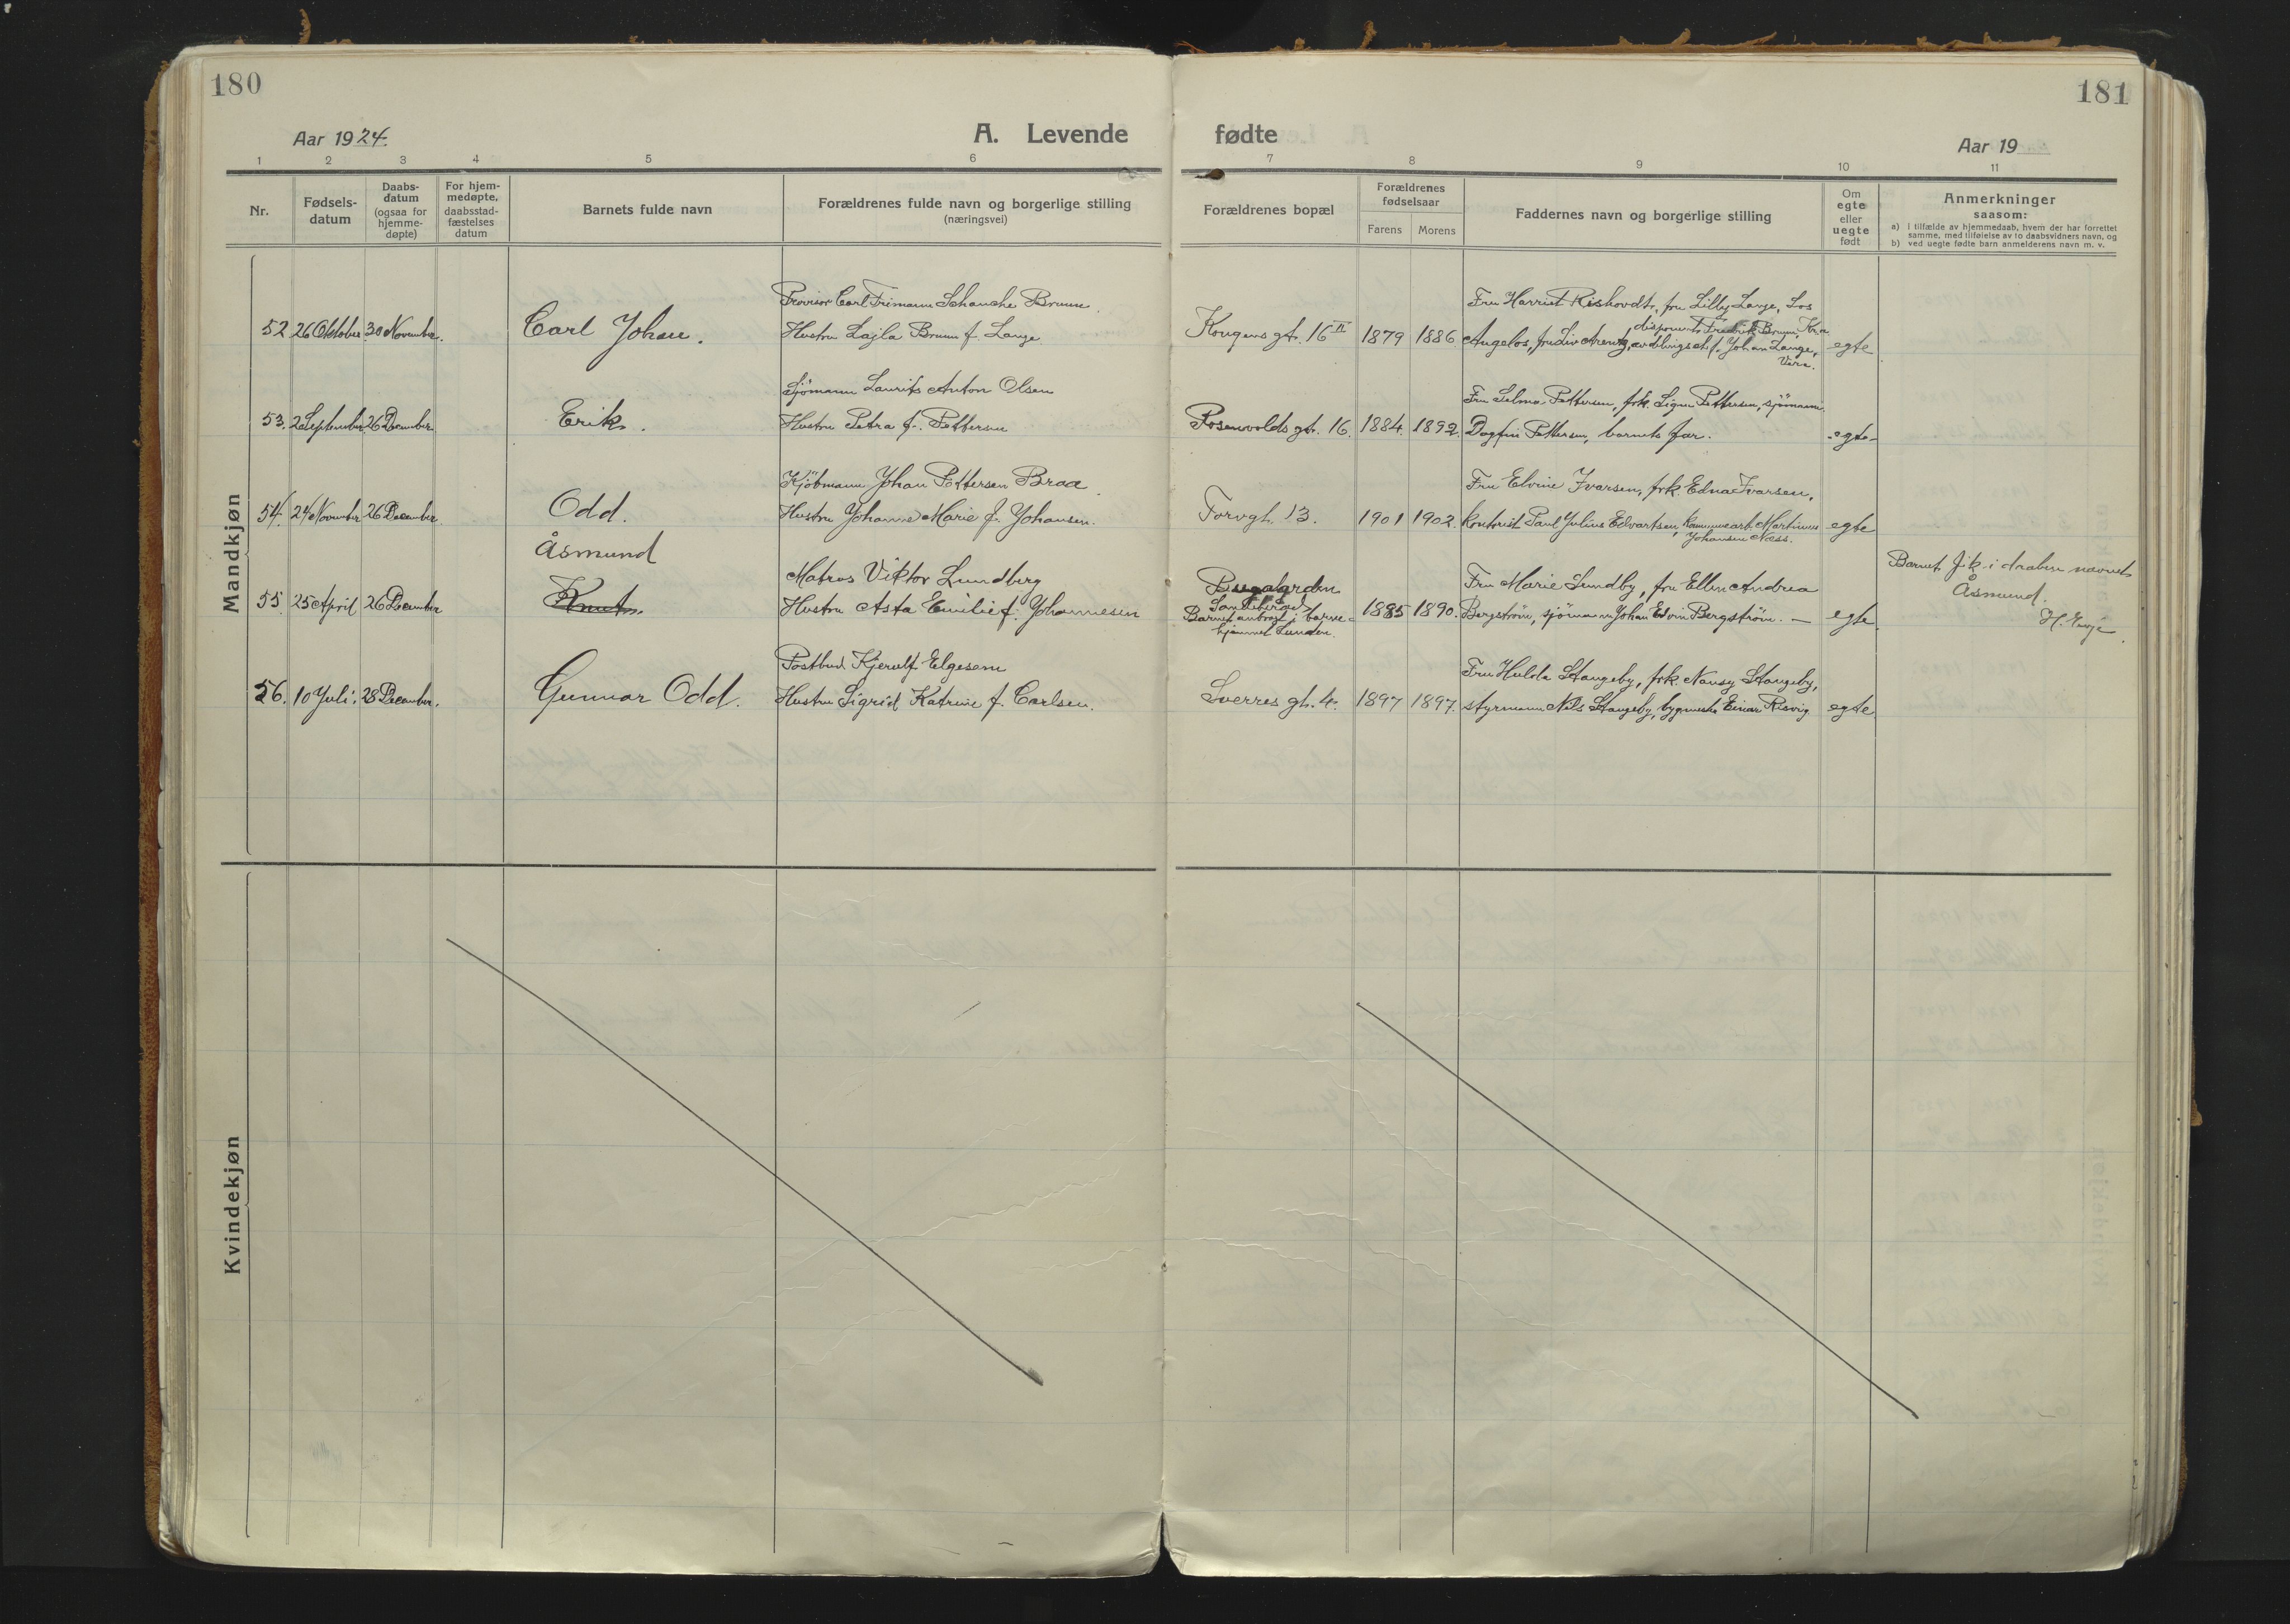 180
Aar 1924.
A. Levende
1 2 3 4 5 6
Nr.
Fødsels-
datum
Daabs-
datum
(ogsaa for
hjemme-
døpte)
For hjem-
medøpte,
daabsstad-
fæstelses
datum
Barnets fulde navn
Forældrenes fulde navn og borgerlige stilling
(næringsvei)
Mandkjøn
Provisor Carl Frimann Schanche Bruun
52 26 Oktober 30 November. Carl Johan. Hustru Lajla Bruun f. Lange
Sjömann Laurits Anton Olsen
53. 2 September 26 December Erik. Hustru Petra f. Pettersen
Kjöbmann Johan Pettersen Braa
54. 24 November 26 December Odd. Hustru Johanne Marie f. Johansen.
Åsmund
Matros Viktor Lundberg
55. 25 April 26 December Knut. Hustru Asta Emilie f. Johannesen
Postbud Kjerulf Elgesem
56. 10 Juli. 28 December. Gunnar Odd. Hustru Sigrid Katrine f. Carlsen.
Kvindekjøn
181
fødte
Aar 19
7 8 9 10 11
Forældrenes bopæl
Forældrenes
fødselsaar
Farens Morens
Faddernes navn og borgerlige stilling
Om
egte
eller
uegte
født
Anmerkninger
saasom:
a) i tilfælde av hjemmedaab, hvem der har forrettet
samme, med tilføielse av to daabsvidners navn, og
b) ved uegte fødte barn anmelderens navn m. v.
Fru Harriet Rishovdt, fru Lilly Lange, Los
disponent Fredrik Bruun, Kra
Kongens gt. 16 II 1879 1886 Angelos, fru Liv Arentz, avdelingschef Johan Lange, egte
Vera.
Fru Selma Pettersen, frk. Signe Pettersen, sjömann
Rosenvolds gt. 16. 1884. 1892. Dagfin Pettersen, barnets far. egte
Fru Elvine Ivarsen, frk. Edna Ivarsen,
Torvgt. 13. 1901 1902. kontorist Paul Julius Edvartsen, kommunearb. Martinius egte
Johansen Næss.
Barnet fik i daaben navnet
Åsmund.
H. Evje
Bugaarden
Sandeherad
Barnet anbragt i barne-
hjemmet Lunden.
Fru Marie Sundby, fru Ellen Andrea
1885 1890. Bergström, sjömann Johan Edvin Bergström. – egte
Fru Hulda Stangeby, frk. Nansy Stangeby,
Sverres gt. 4. 1897 1897. styrmann Nils Stangeby, bygmester Einar Risvig egte